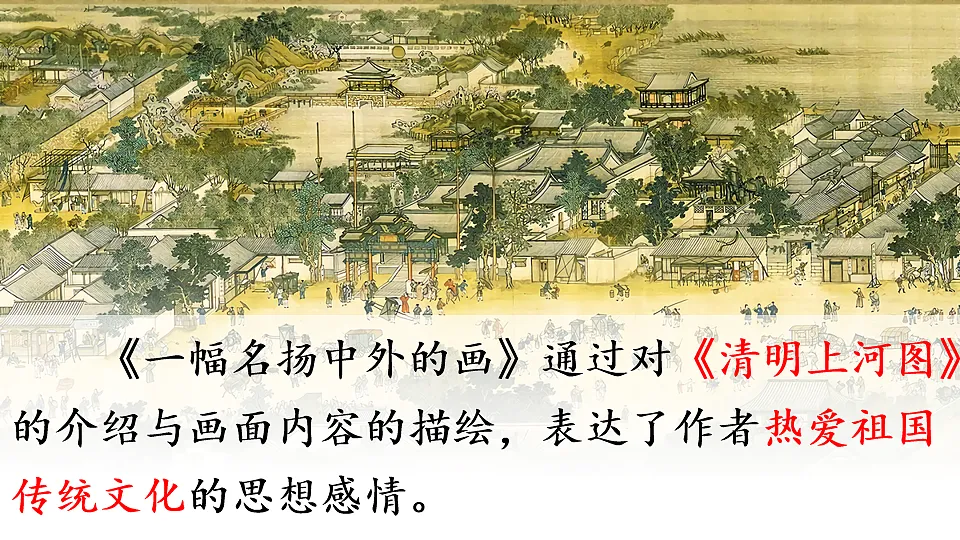 《一幅名扬中外的画》通过对《清明上河图》
的介绍与画面内容的描绘，表达了作者热爱祖国
传统文化的思想感情。